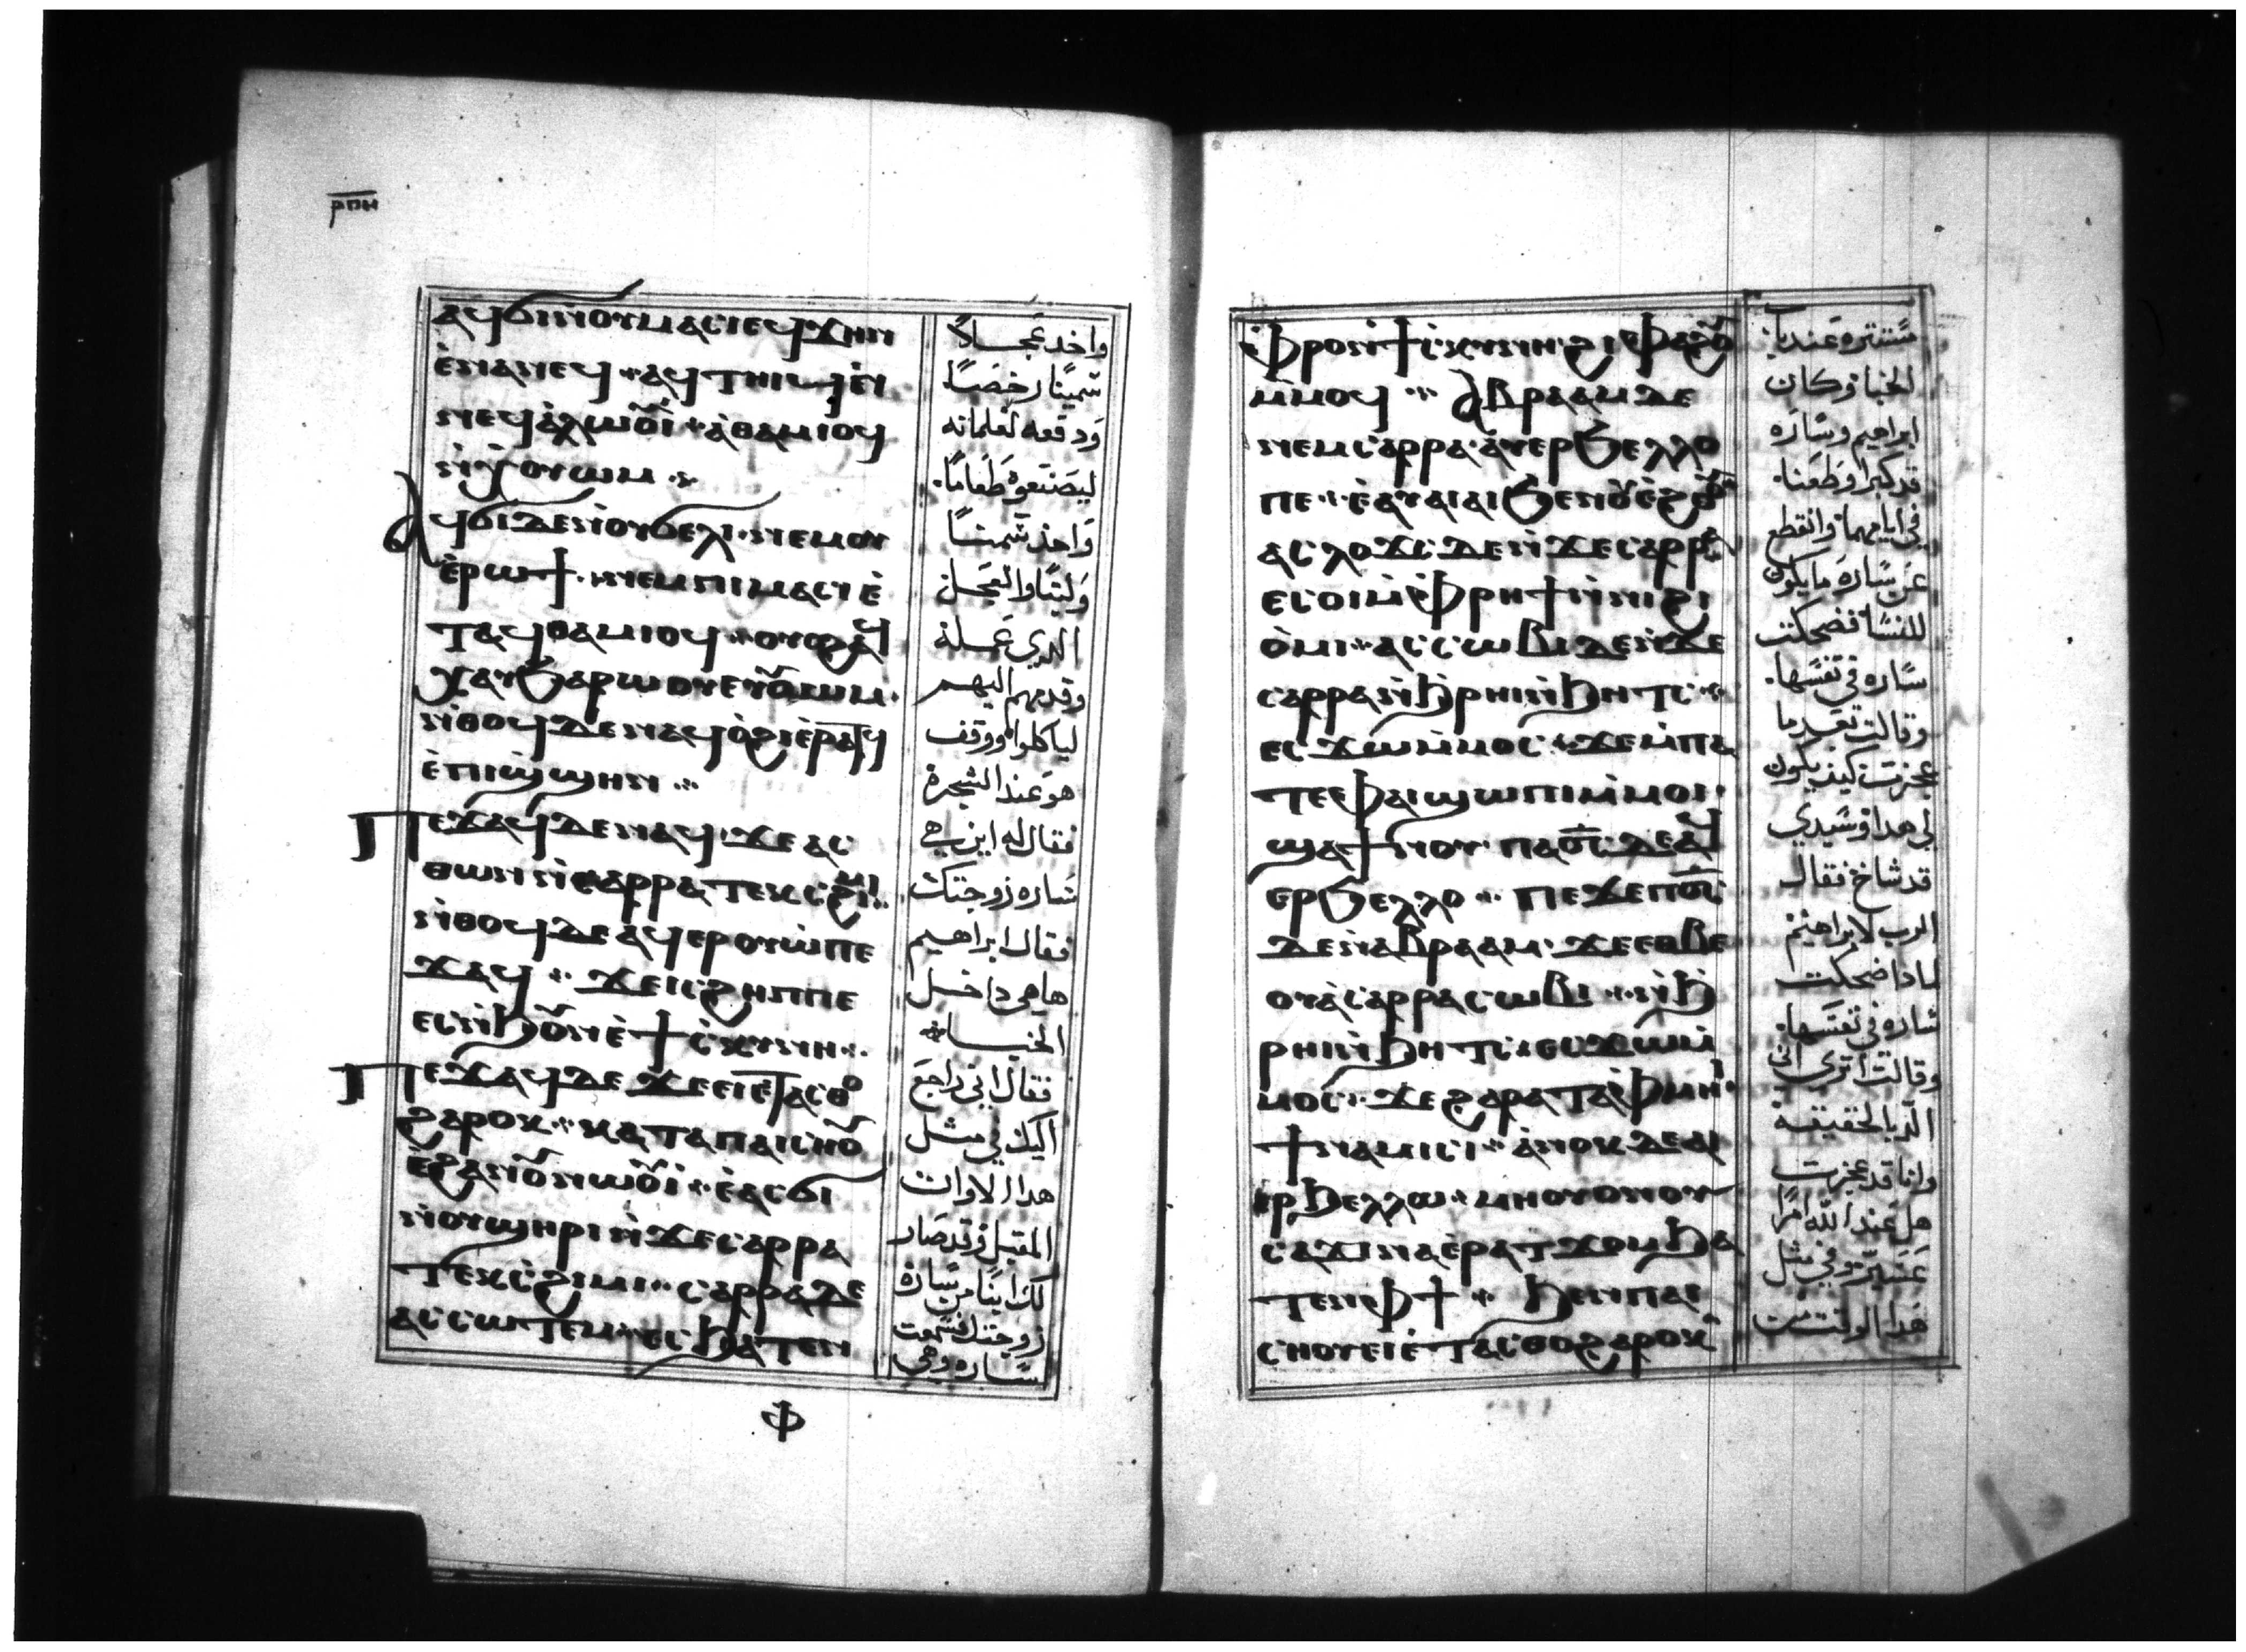 ⲣⲡⲏ
ⲁϥϭⲓⲛⲟⲩⲙⲁⲥⲓ ⲉϥϫⲏⲛ
ⲉⲛⲁⲛⲉϥ ⲁϥⲧⲏⲓϥ ⲉⲛⲓ
ⲛⲉϥⲁⲗⲱⲟⲩⲓ ⲁⲑⲁⲙⲓⲟϥ
ⲛϫⲓⲛⲟⲩⲱⲙ
ⲁϥϭⲓ ⲇⲉ ⲛⲟⲩϭⲉⲗⲓ ⲛⲉⲙ ⲟⲩ
ⲉⲣⲱϯ ⲛⲉⲙ ⲡⲓⲙⲁⲥⲓ ⲉ
ⲧⲁϥⲑⲁⲙⲓⲟϥ ⲟⲩⲟϩ ⲁϥ
ⲭⲁⲩ ϧⲁⲣⲱⲟⲩ ⲉⲩⲟⲩⲱⲙ
ⲛⲑⲟϥ ⲇⲉ ⲛⲁϥⲟϩⲓ ⲉⲣⲁⲧϥ
ⲉⲡⲓϣϣⲏⲛ
ⲡⲉϫⲁϥ ⲇⲉ ⲛⲁϥ ϫⲉ ⲁⲥ
ⲑⲱⲛ ⲛⲥⲁⲣⲣⲁ ⲧⲉⲕⲥϩⲓⲙⲓ
ⲛⲑⲟϥ ⲇⲉ ⲁϥⲉⲣⲟⲩⲱ ⲡⲉ
ϫⲁϥ ϫⲉ ⲓⲥ ϩⲏⲡⲡⲉ
ⲉⲥⲛϧⲟⲩⲛ ⲉϯⲥⲕⲩⲛⲏ
ⲡⲉϫⲁϥ ⲇⲉ ϫⲉ ⲉⲓⲉⲧⲁⲥⲑⲟ
ϩⲁⲣⲟⲕ ⲕⲁⲧⲁ ⲡⲁⲓⲥⲏⲟⲩ
ⲉϩⲣⲁⲛⲟⲩⲛⲱⲟⲩⲓ ⲉⲁⲥϭⲓ
ⲛⲟⲩϣⲏⲣⲓ ⲛϫⲉ ⲥⲁⲣⲣⲁ
ⲧⲉⲕⲥϩⲓⲙⲓ ⲥⲁⲣⲣⲁ ⲇⲉ
ⲁⲥⲥⲱⲧⲉⲙ ⲉⲥϧⲁⲧⲉⲛ
ⲫ
واخد عجلاً
سمينًا رخصًا.
ودفعه لغلمانه
ليصنعوه طعامًا.
واخذ سمنًا
ولبنًا والعجل
الدي عمله
وقدمهم اليهم
لياكلوا ووقف
هو عند الشجرة
فقال له اين هي
ساره زوجتك
فقال ابراهيم
ها هي داخل
الخبا
فقال اني راجع
اليك في مثل
هدا الاوان
المقبل وقد صار
لك ابنًا من ساره
زوجتك فسمعت
ساره وهي
ⲫⲣⲟ ⲛϯⲥⲕⲩⲛⲏ ϩⲓⲫⲁϩⲟⲩ
ⲙⲙⲟϥ ⲁⲃⲣⲁⲁⲙ ⲇⲉ
ⲛⲉⲙ ⲥⲁⲣⲣⲁ ⲁⲩⲉⲣϧⲉⲗⲗⲟ
ⲡⲉ ⲉⲁⲩⲁⲓⲁⲓ ϧⲉⲛⲟⲩⲉϩⲟⲟⲩ
ⲁⲥⲗⲟϫⲥ ⲇⲉ ⲛϫⲉ ⲥⲁⲣⲣⲁ
ⲉⲥⲟⲓ ⲙⲫⲣⲏϯ ⲛⲛⲓϩⲓ
ⲟⲙⲓ ⲁⲥⲥⲱⲃⲓ ⲇⲉ ⲛϫⲉ
ⲥⲁⲣⲣⲁ ⲛϧⲣⲏⲓ ⲛϧⲏⲧⲥ
ⲉⲥϫⲱ ⲙⲙⲟⲥ ϫⲉ ⲙⲡⲁ
ⲧⲉ ⲫⲁⲓ ϣⲱⲡⲓ ⲙⲙⲟⲓ
ϣⲁϯⲛⲟⲩ ⲡⲁϭⲥ ⲇⲉ ⲁϥ
ⲉⲣϧⲉⲗⲗⲟ ⲡⲉϫⲉ ⲡϭⲥ
ⲇⲉ ⲛⲁⲃⲣⲁⲁⲙ ϫⲉ ⲉⲑⲃⲉ
ⲟⲩ ⲁⲥⲁⲣⲣⲁ ⲥⲱⲃⲓ ⲛϧ
ⲣⲏⲓ ⲛϧⲏⲧⲥ ⲉⲥϫⲱ ⲙ
ⲙⲟⲥ ϫⲉ ϩⲁⲣⲁ ⲧⲁⲫⲙⲏⲓ
ϯⲛⲁⲙⲓⲥⲓ ⲁⲛⲟⲕ ⲇⲉ ⲁⲓ
ⲉⲣϧⲉⲗⲗⲱ ⲙⲏ ⲟⲩⲟⲛ ⲟⲩ
ⲥⲁϫⲓ ⲛⲁⲉⲣⲁⲧϫⲟⲙ ϧⲁ
ⲧⲉⲛ ⲫϯ ϧⲉⲛ ⲡⲁⲓ
ⲥⲏⲟⲩ ⲉⲓⲉⲧⲁⲥⲑⲟ ϩⲁⲣⲟⲕ
مستتره عند باب
الخبا وكان
ابراهيم وساره
قد كبرا وطعنا.
في ايامهما وانقطع
عن ساره ما يكون
للنسا فضحكت
ساره في نفسها.
وقالت بعد ما
عجزت كيف يكون
لي هدا وسيدي
قد شاخ فقال
الرب لابراهيم
لمادا ضحكت
ساره في نفسها.
وقالت اترى اني
الد بالحقيقة
وانا قد عجزت
هل عند الله امرًا
عسير وفي مثل
هدا الوقت